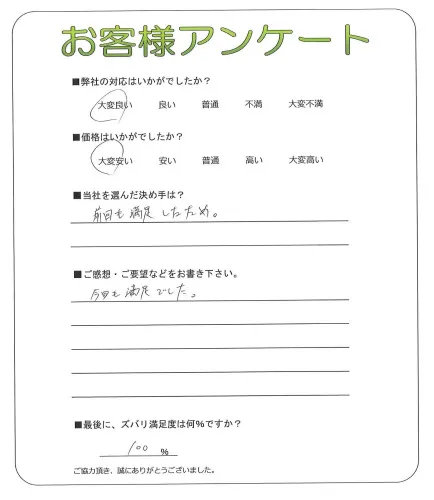 お客様アンケート
■弊社の対応はいかがでしたか？
大変良い 良い 普通 不満 大変不満
■価格はいかがでしたか？
大変安い 安い 普通 高い 大変高い
■当社を選んだ決め手は？
前回も満足したため。
■ご感想・ご要望などをお書き下さい。
今回も満足でした。
■最後に、ズバリ満足度は何％ですか？
100 ％
ご協力頂き、誠にありがとうございました。